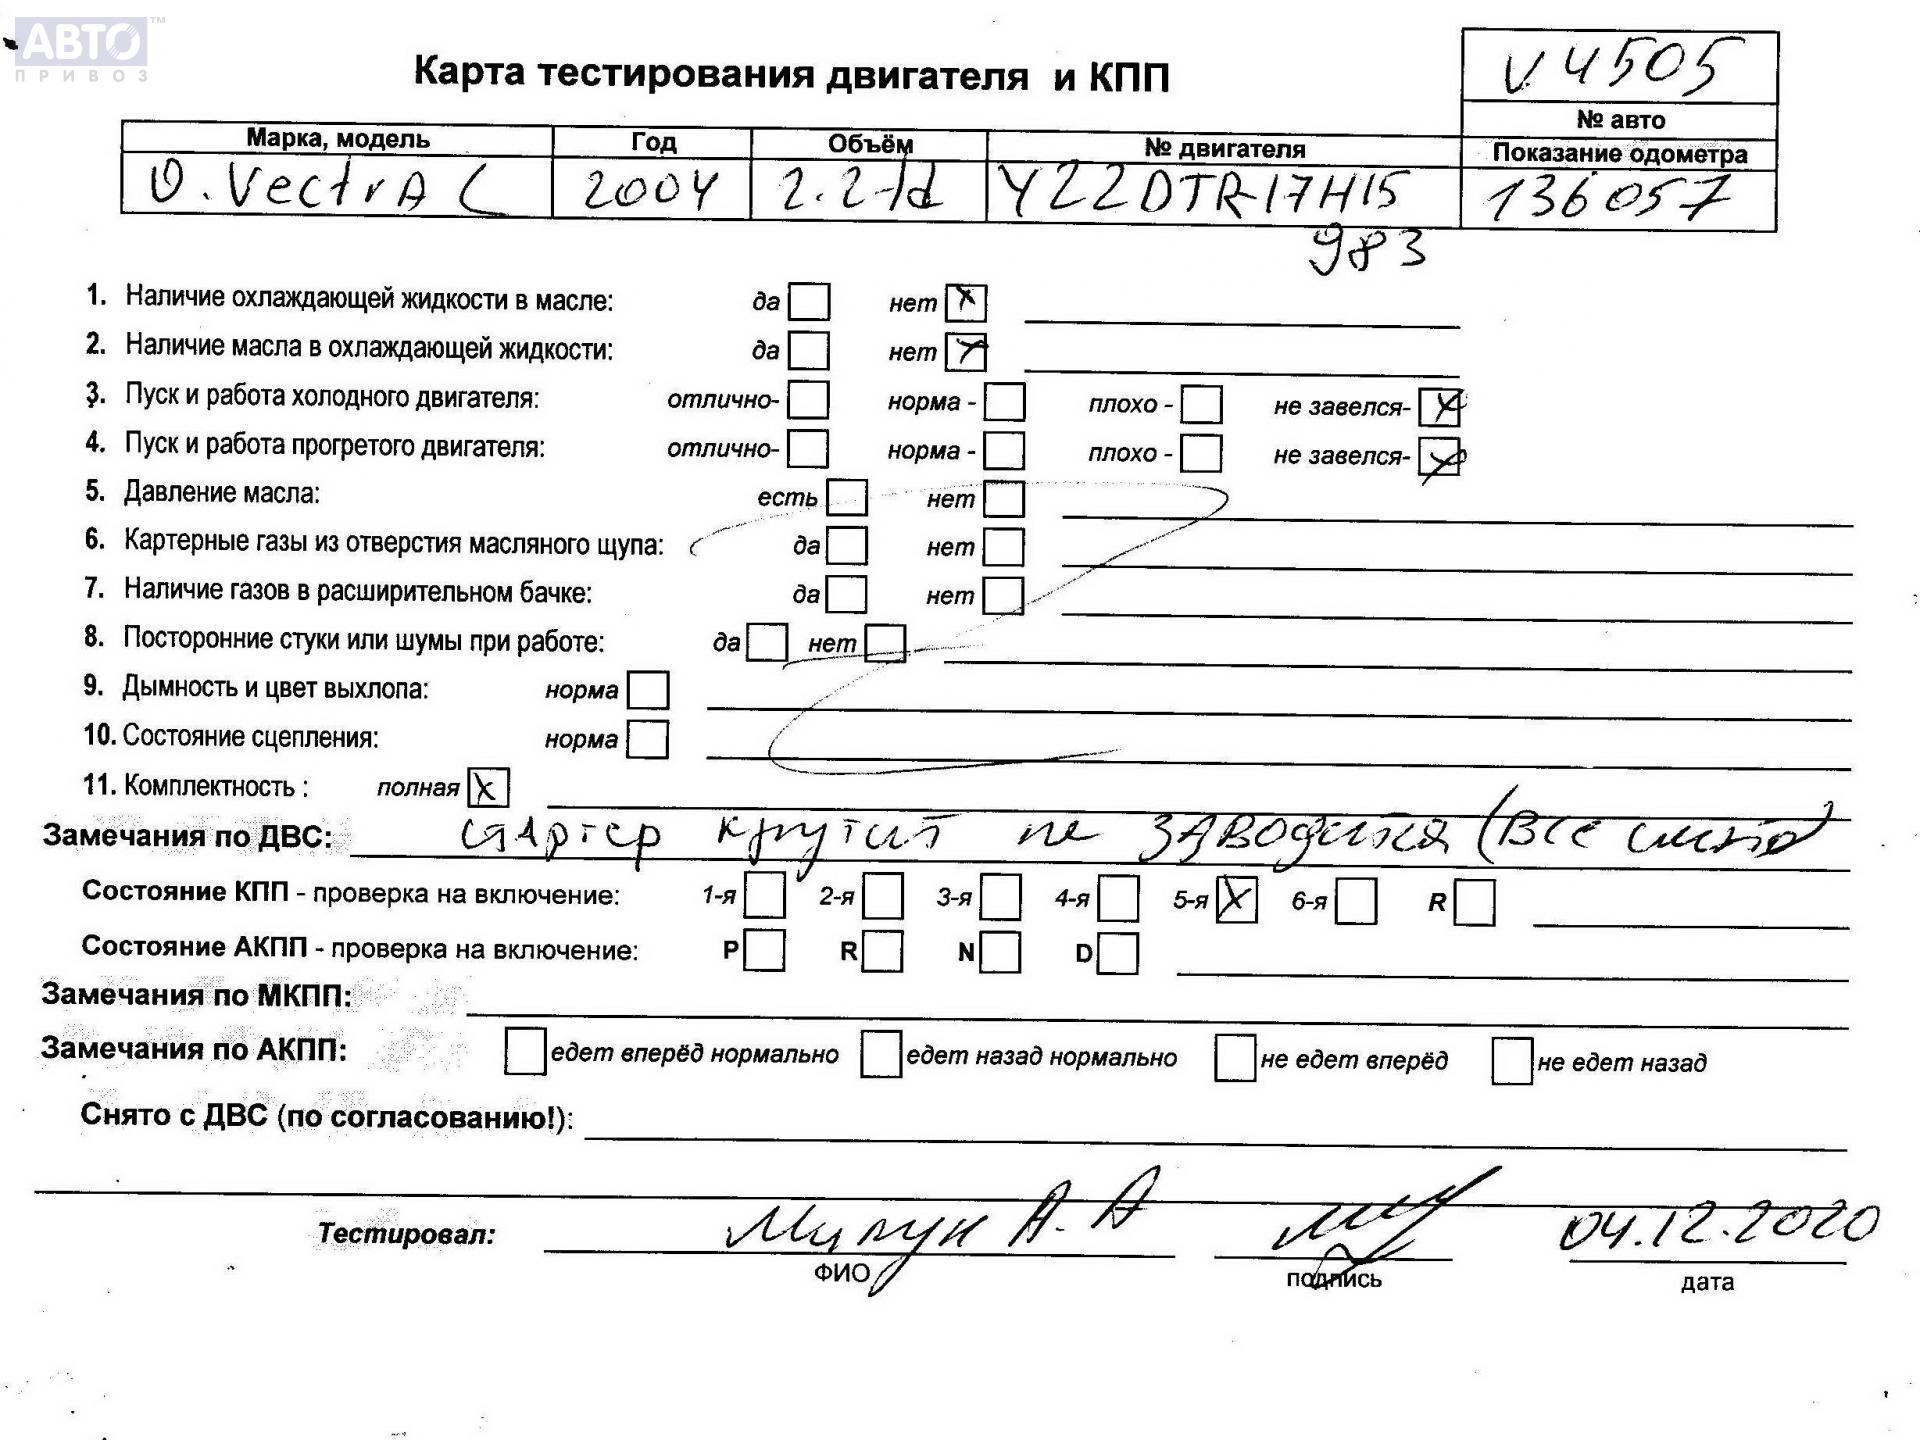 АВТО™
ПРИВОЗ
Карта тестирования двигателя и КПП
V4505
№ авто
Марка, модель Год Объём № двигателя Показание одометра
O. VectrA C 2004 2.2td Y22DTR-17H15 136057
983
1. Наличие охлаждающей жидкости в масле: да нет X
2. Наличие масла в охлаждающей жидкости: да нет X
3. Пуск и работа холодного двигателя: отлично- норма - плохо - не завелся- X
4. Пуск и работа прогретого двигателя: отлично- норма - плохо - не завелся- X
5. Давление масла: есть нет
6. Картерные газы из отверстия масляного щупа: да нет
7. Наличие газов в расширительном бачке: да нет
8. Посторонние стуки или шумы при работе: да нет
9. Дымность и цвет выхлопа: норма
10. Состояние сцепления: норма
11. Комплектность : полная X
Замечания по ДВС: стартер крутит не заводится (Все
Состояние КПП - проверка на включение: 1-я 2-я 3-я 4-я 5-я X 6-я R
Состояние АКПП - проверка на включение: P R N D
Замечания по МКПП:
Замечания по АКПП: едет вперёд нормально едет назад нормально не едет вперёд не едет назад
Снято с ДВС (по согласованию!):
Тестировал: А.А 04.12.2020
ФИО подпись дата